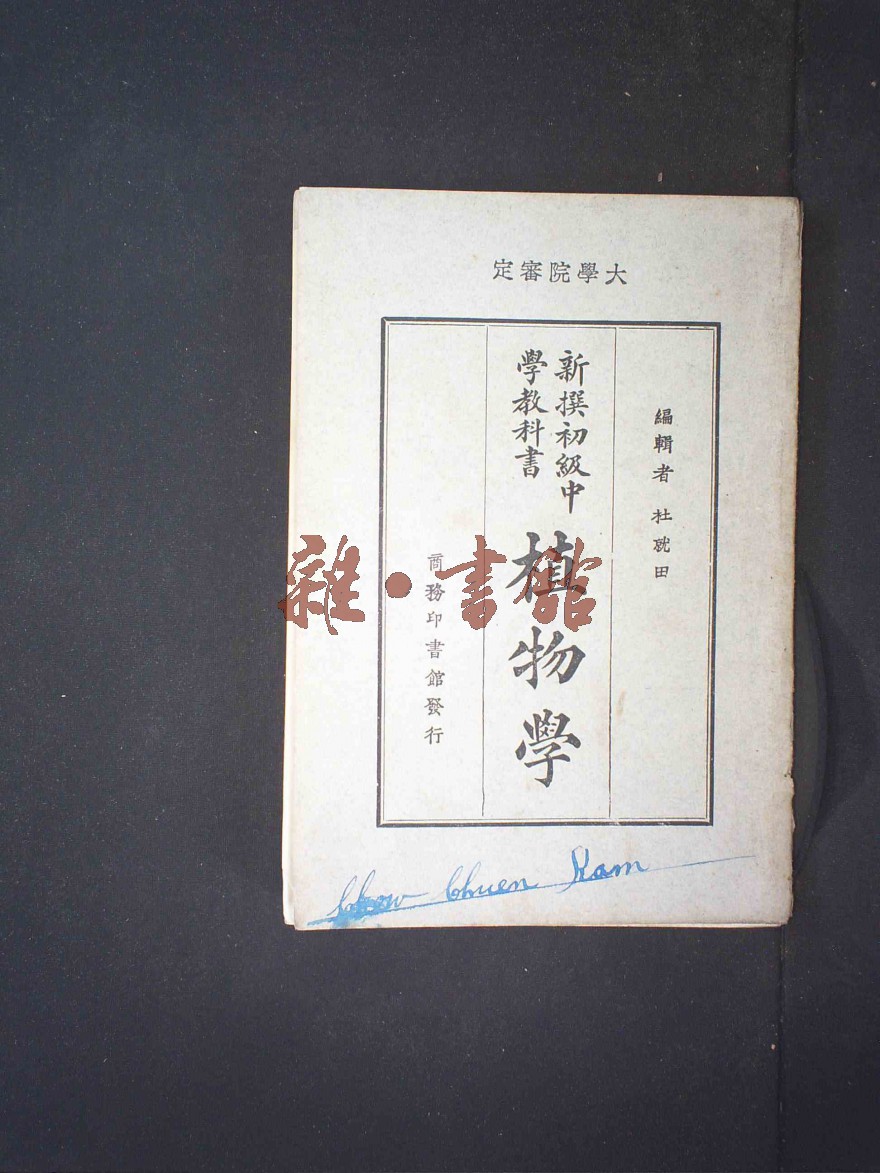 大學院審定
編輯者 杜就田
新撰初級中
學教科書
植物學
商務印書館發行
Chow Chuen Kam
雜·書館